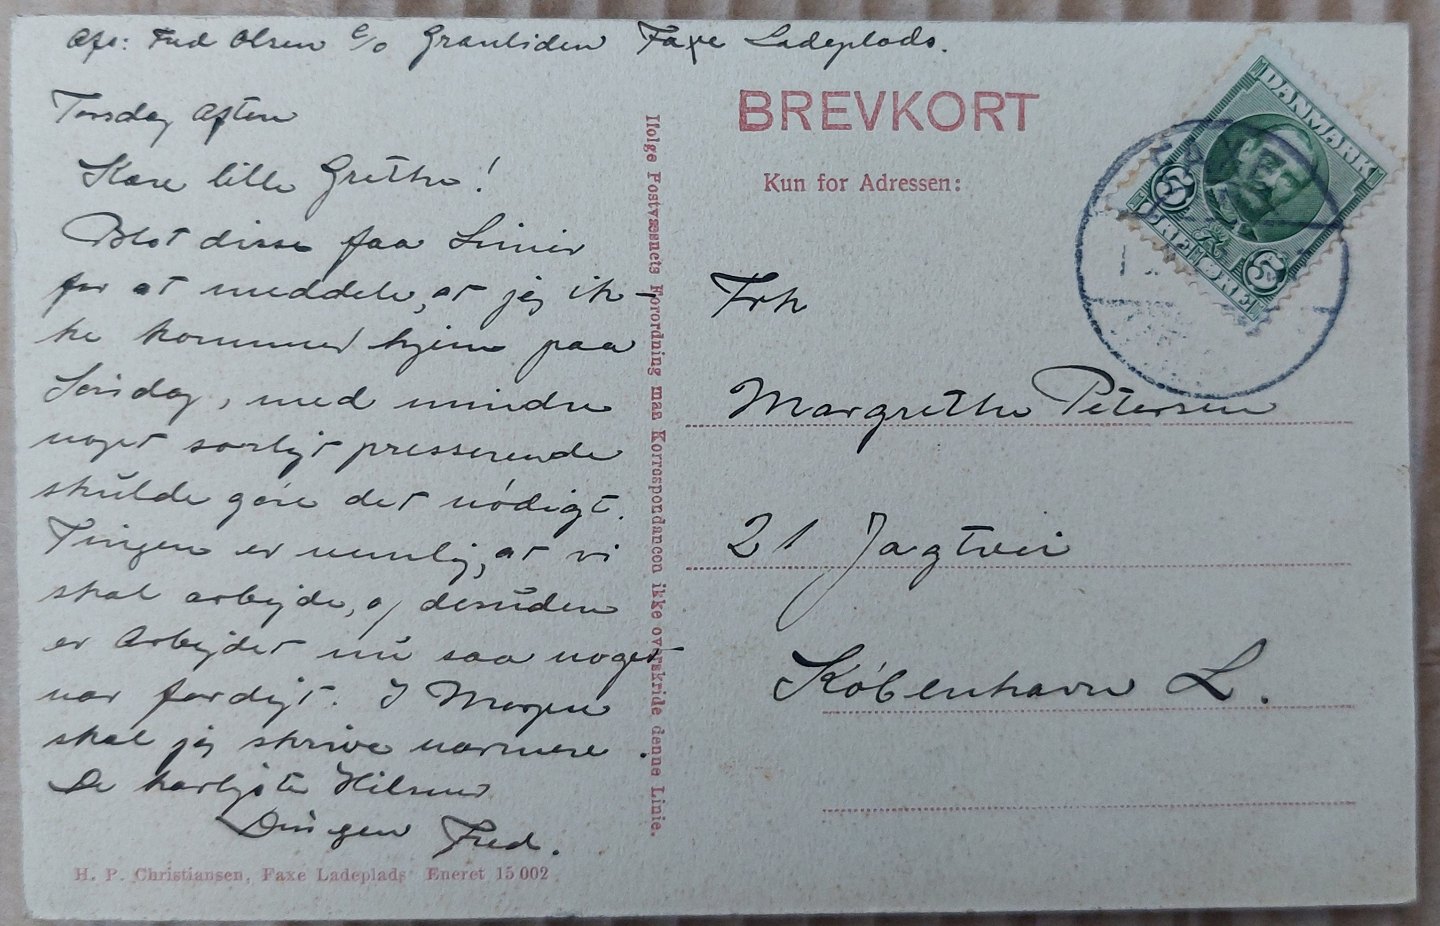 Afs: Fred Olsen c/o Granliden Faxe Ladeplads.
BREVKORT
Kun for Adressen:
DANMARK
5 5
PRIS 5 ØRE
Torsdag Aften
Kære lille Grethe!
Blot disse faa Linier
for at meddele, at jeg ik-
ke kommer hjem paa
Søndag, med mindre
noget særligt presserende
skulde gøre det nødigt.
Tingen er nemlig, at vi
skal arbejde, og desuden
er Arbejdet nu saa noget
nær færdigt. I Morgen
skal jeg skrive nærmere.
De kærligste Hilsner
Fred.
Ifølge Postvæsnets Forordning maa Korrespondancen ikke overskride denne Linie.
Frk
Margrethe Petersen
21 Jagtvei
København L.
H. P. Christiansen, Faxe Ladeplads Eneret 15002